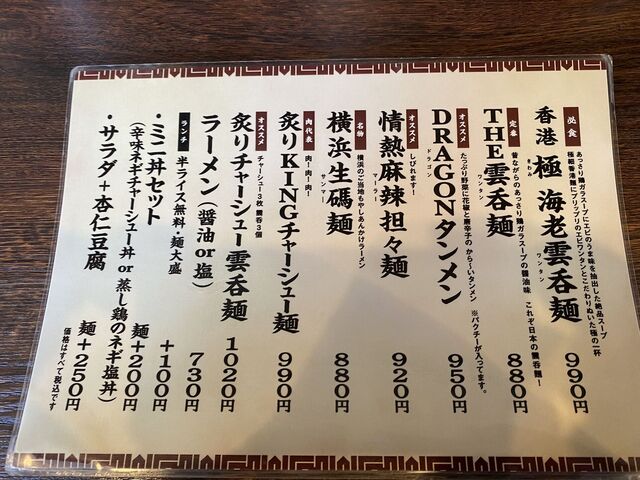 必食
あっさり鶏ガラスープにエビのうま味を抽出した絶品スープ
極細香港麺にプリプリのエビワンタンとこだわりぬいた極の一杯
香港 極 海老雲呑麺 990円
きわみ
ワンタン
定番
昔ながらのあっさり鶏ガラスープの醤油味 これぞ日本の雲呑麺！
THE雲呑麺 880円
ワンタン
オススメ
たっぷり野菜に花椒と唐辛子の から〜いタンメン ※パクチーが入ってます。
DRAGONタンメン 950円
ドラゴン
オススメ
しびれます！
情熱麻辣担々麺 920円
マーラー
名物
横浜のご当地もやしあんかけラーメン
横浜生碼麺 880円
サンマー
肉代表
肉！肉！肉！
炙りKINGチャーシュー麺 990円
オススメ
チャーシュー3枚 雲呑3個
炙りチャーシュー雲呑麺 1020円
ラーメン（醤油or塩） 730円
ランチ
半ライス無料・麺大盛 +100円
・ミニ丼セット 麺+200円
（辛味ネギチャーシュー丼or蒸し鶏のネギ塩丼）
・サラダ+杏仁豆腐 麺+250円
価格はすべて税込です